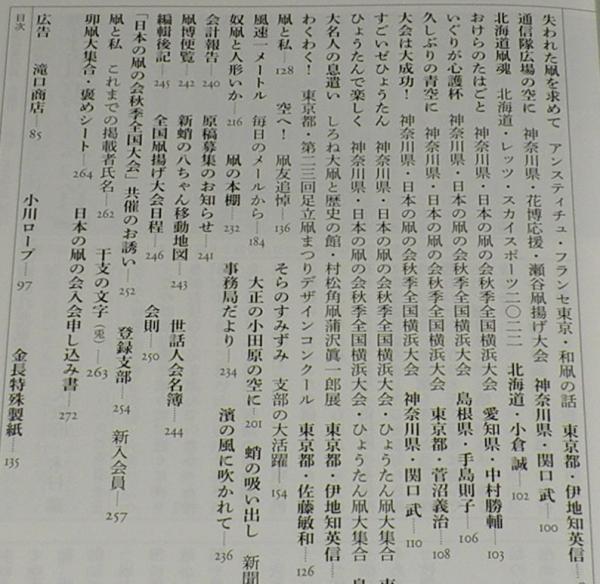 失われた凧を求めて アンスティチュ・フランセ東京・和凧の話 東京都・伊地知英信
通信隊広場の空に 神奈川県・花博応援・瀬谷凧揚げ大会 神奈川県・関口 武 100
北海道凧魂 北海道・レッツ・スカイスポーツ二〇二二 北海道・小倉 誠 102
おけらのたはごと 神奈川県・日本の凧の会秋季全国横浜大会 愛知県・中村勝輔 103
いぐりが心護杯 神奈川県・日本の凧の会秋季全国横浜大会 島根県・手島則子 106
久しぶりの青空に 神奈川県・日本の凧の会秋季全国横浜大会 東京都・菅沼義治 108
大会は大成功！ 神奈川県・日本の凧の会秋季全国横浜大会 神奈川県・関口 武 110
すごいぜひょうたん 神奈川県・日本の凧の会秋季全国横浜大会・ひょうたん凧大集合
ひょうたんで楽しく 神奈川県・日本の凧の会秋季全国横浜大会・ひょうたん凧大集合
大名人の息遣い しろね大凧と歴史の館・村松角凧蒲沢眞一郎展 東京都・伊地知英信
わくわく！ 東京都・第二三回足立凧まつりデザインコンクール 東京都・佐藤敏和 126
凧と私 128 空へ！ 凧友追悼 136 そらのすみずみ 支部の大活躍 154
風速一メートル 毎日のメールから 184 大正の小田原の空に 201 蛸の吸い出し 新聞
奴凧と人形いか 216 凧の本棚 232 事務局だより 234 濱の風に吹かれて 236
会計報告 240 原稿募集のお知らせ 241
凧博便覧 242 新蛸の八ちゃん移動地図 243 世話人会名簿 244
編輯後記 245 全国凧揚げ大会日程 246 会則 250
「日本の凧の会秋季全国大会」共催のお誘い 252 登録支部 254 新入会員 257
凧と私 これまでの掲載者氏名 262 干支の文字（兎） 263
卯凧大集合・褒めシート 264 日本の凧の会入会申し込み書 272
広告 滝口商店 85 小川ロープ 97 金長特殊製紙 135
目次